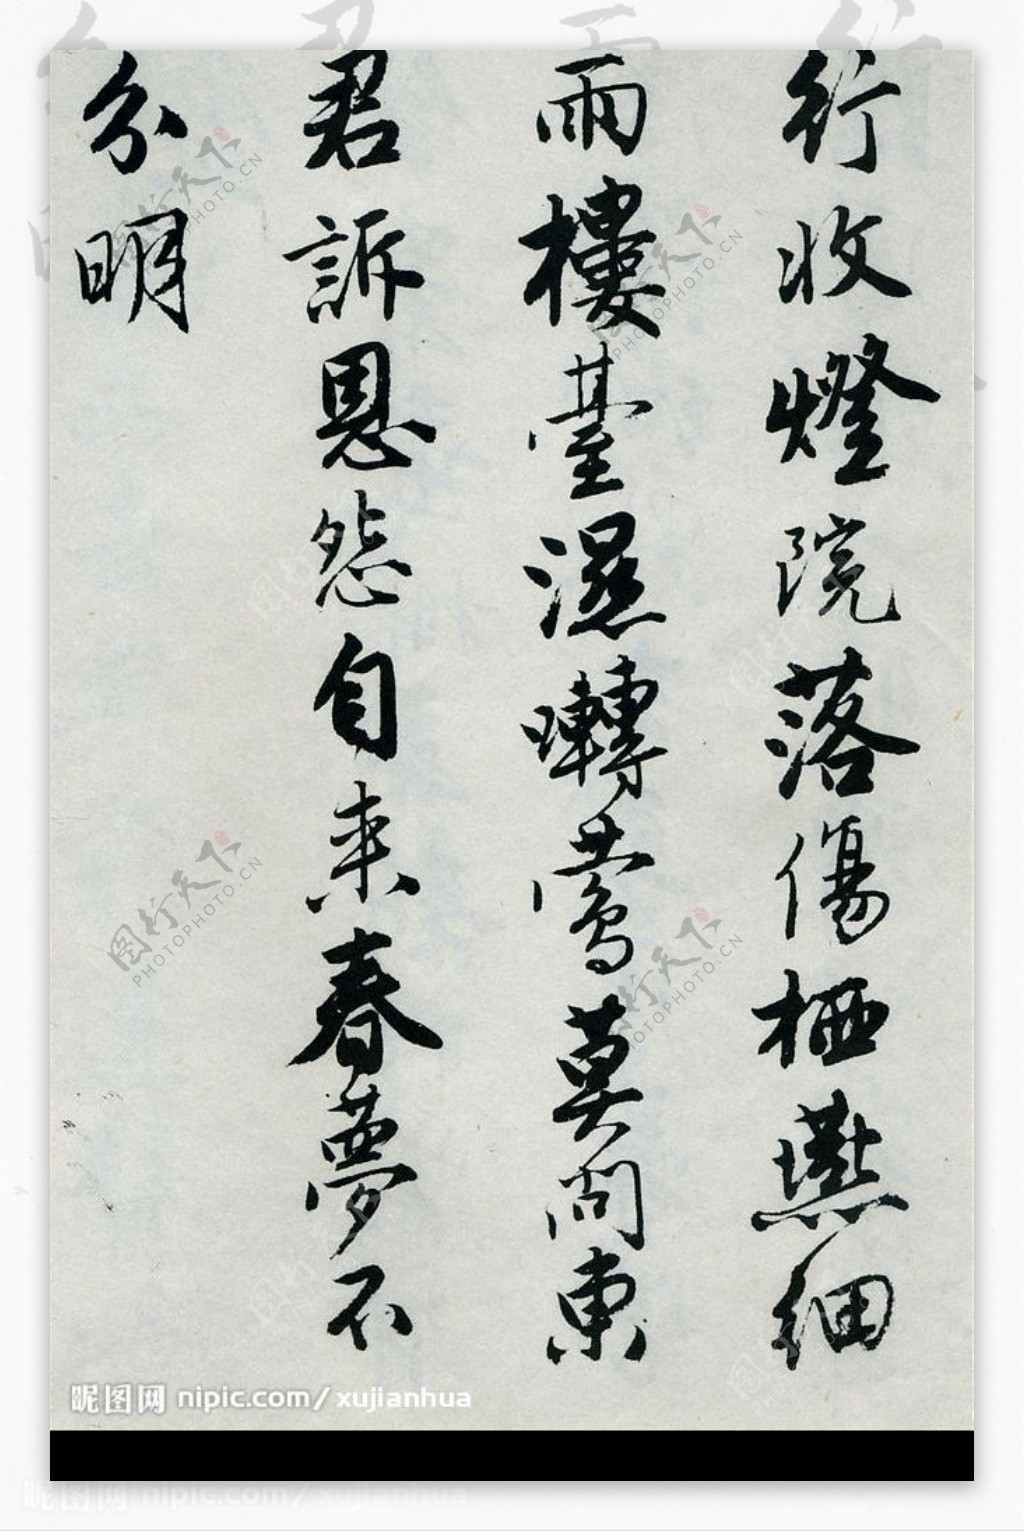 行收燈院落傷栖燕細
雨樓臺濕囀鶯莫問東
君訴恩怨自来春夢不
分明
昵图网 nipic.com/xujianhua
图行天下
PHOTOPHOTO.CN